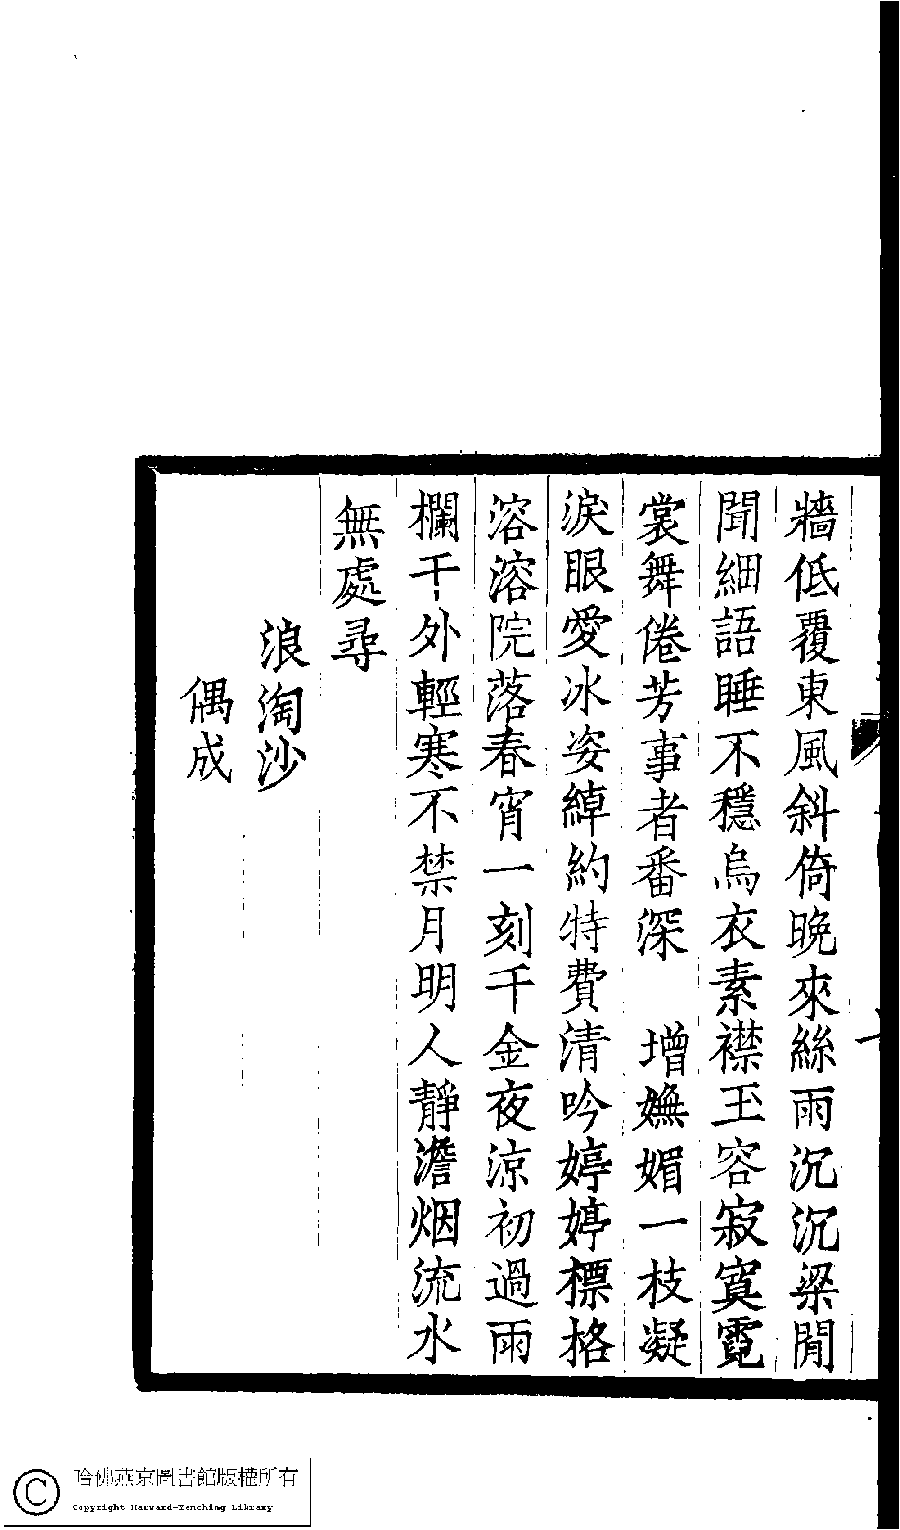 牆低覆東風斜倚晚來絲雨沉沉梁間
聞細語睡不穩烏衣素襟玉容寂寞霓
裳舞倦芳事者番深　增嫵媚一枝凝
淚眼愛冰姿綽約特費清吟婷婷標格
溶溶院落春宵一刻千金夜涼初過雨
欄干外輕寒不禁月明人靜澹烟流水
無處尋
浪淘沙
偶成
哈佛燕京圖書館版權所有
Copyright Harvard-Yenching Library